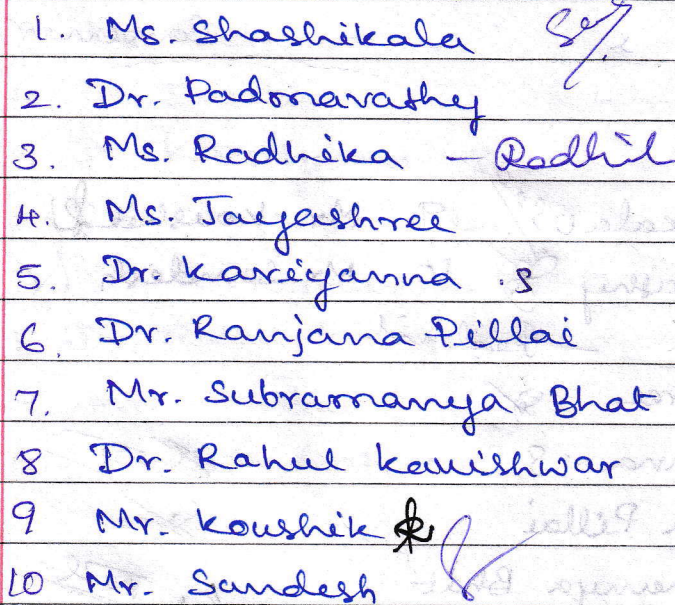 1. Ms. Shashikala
2. Dr. Padmavathy
3. Ms. Radhika - Radhik
4. Ms. Jayashree
5. Dr. Kariyanna .S
6. Dr. Ranjana Pillai
7. Mr. Subramanya Bhat
8 Dr. Rahul Kavishwar
9 Mr. Koushik
10 Mr. Sandesh